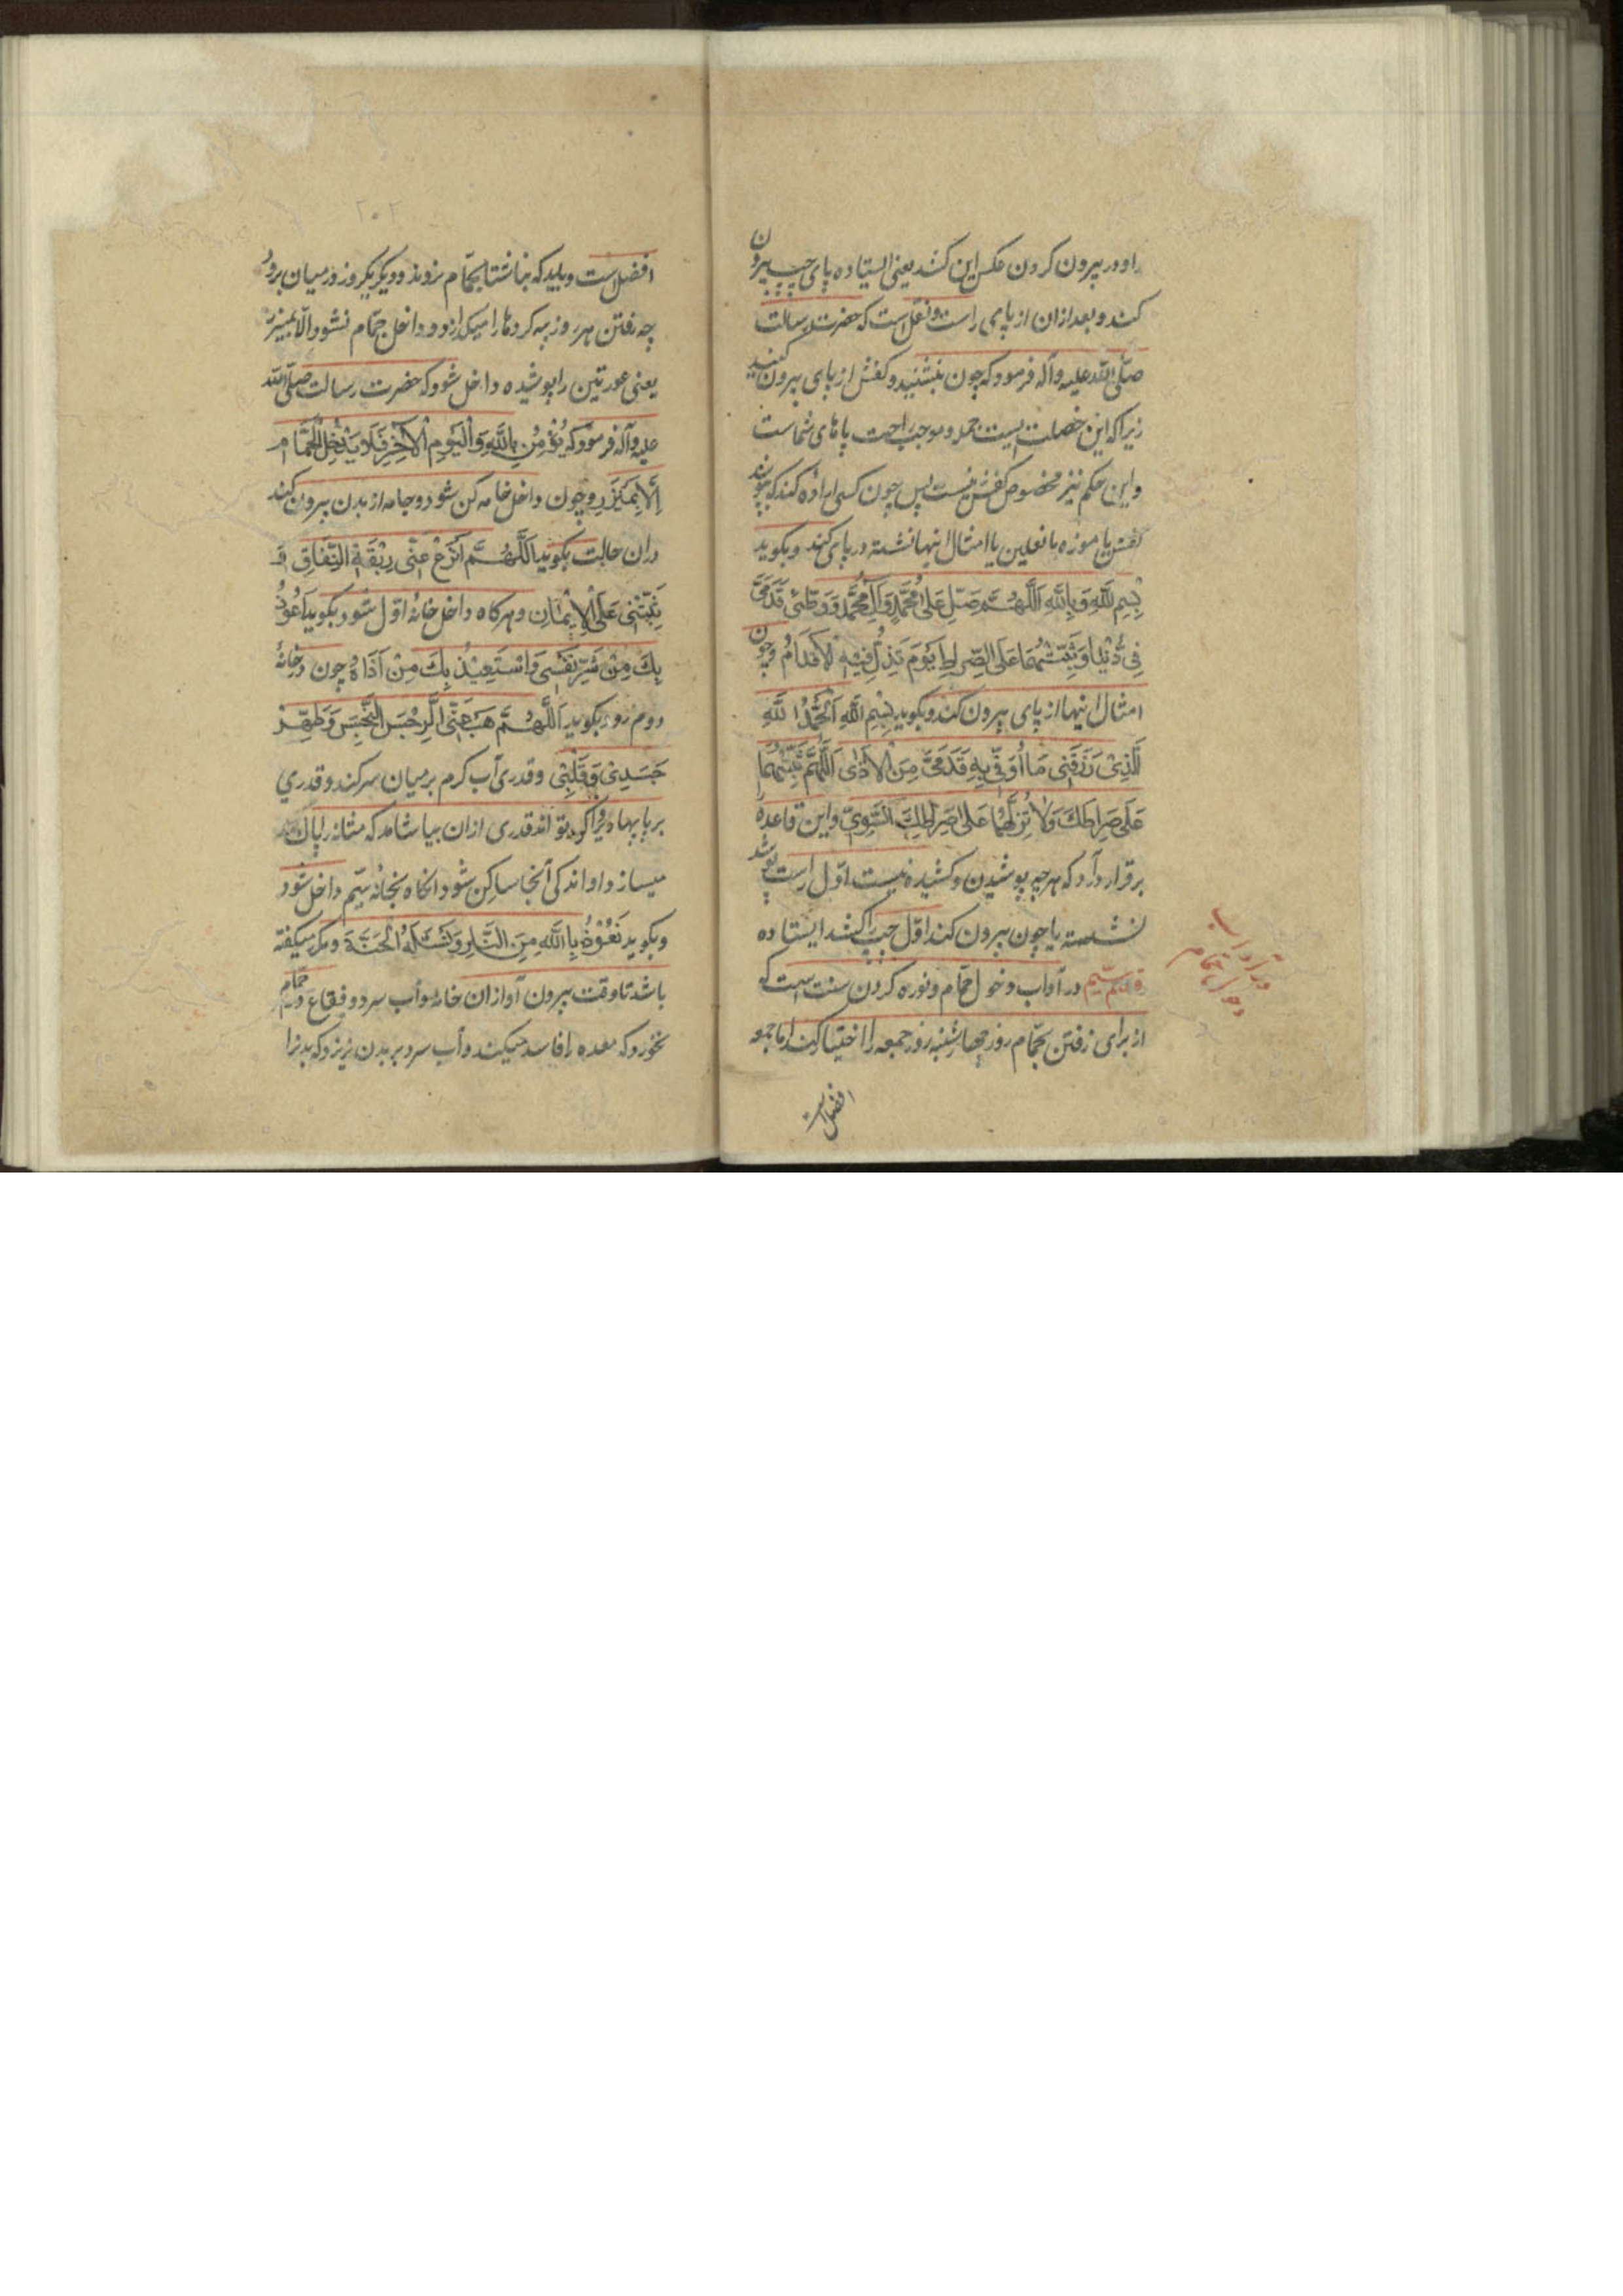 را و در بیرون کردن عکس این کند یعنی ایستاده پای چپ بیرون
کند و بعد از ان از پای راست و نقل است که حضرت رسالت
صلّی الله علیه و آله فرمود که چون بنشینید و کفش از پای بیرون کنید
زیرا که این خصلت ایست و موجب راحت پاهای شماست
و این حکم نیز مخصوص کفش نیست پس چون کسی اراده کند که بپوشد
کفش یا موزه یا نعلین یا امثال اینها نشسته در پای کند و بگوید
بِسْمِ اللهِ وَبِاللهِ اَللّهُمَّ صَلِّ عَلی مُحَمَّدٍ وَآلِ مُحَمَّد وَوَطِّئ قَدَمَیَّ
فِی دُنْیا وَثَبِّتْهُمَا عَلَی الصِّرِاطِ یَوْمَ تَزِلُّ فِیْهِ الاَقْدَامُ و چون
امثال اینها از پای بیرون کند و بگوید بِسْمِ اللهِ اَلْحَمْدُ لِلّهِ
لَّذِیْ رَزَقَنِی مَا اُوَقِّی بِهِ قَدَمَیَّ مِنَ الْاَذٰی اَللّهُمَّ ثَبِّتْهُمَا
عَلَی صِرَاطِکَ وَلَا تُزِلَّهُمَا عَلی صِرَاطِکَ السَّوِیِّ و این قاعده
برقرار دارد که هر چیز پوشیدن و کشیده نیست اوّل راست پوشد
نشسته یا چون بیرون کند اوّل چپ را کشد ایستاده
قسم سیّم در آداب دخول حمّام و نوره کردن سنت است که
از برای رفتن بحمّام روز چهارشنبه روز جمعه را اختیار کند امّا جمعه
افضل است
۲۰۲
افضل است و باید که بناشتا بحمّام نرود و دیگر یکروز در میان برود
چه رفتن هر روز پیه کرده‌ها را میکدازد و داخل حمّام نشود الّا بمیزر
یعنی عورتین را پوشیده داخل شود که حضرت رسالت صلّی الله
علیه و آله فرمود که یُؤْمِنُ بِاللّهِ وَالْیَوْمِ الْاٰخِرِ فَلَا یَدْخُلِ الْحَمَّام
اِلَّا بِمَیْزَرٍ و چون داخل جامه کن شود و جامه از بدن بیرون کند
دران حالت بگوید اَللّهُمَّ انْزَعْ عَنّی رِبْقَةَ النِّفَاقِ وَ
ثَبِّتْنِی عَلَی الْاِیْمٰانِ و هرکاه داخل خانهٔ اوّل شود بگوید اَعُوْذُ
بِکَ مِنْ شَرِّ نَفْسِی وَاسْتَعِیْذُ بِکَ مِنْ اَذَاهُ چون در خانهٔ
دوم رود بگوید اَللّهُمَّ اذْهَبْ عَنّی الرِّجْسَ النَّجِسَ وَطَهِّرْ
جَسَدِیْ وَقَلْبِیْ و قدری آب کرم بر میان سر کند و قدری
بر پایها و اگر تواند قدری از ان بیاشامد که مثانه را پاک
میسازد و اندکی آنجا ساکن شود انگاه بخانهٔ سیّم داخل شود
و بگوید نَعُوْذُ بِاللهِ مِنَ النَّارِ وَنَسْئَلُهُ الْجَنَّةَ و مکرر میگفته
باشد تا وقت بیرون آوازان خانه و آب سرد و فقاع در حمّام
نخورد که معده را فاسد میکند و آب سرد بر بدن نریزد که بدنرا